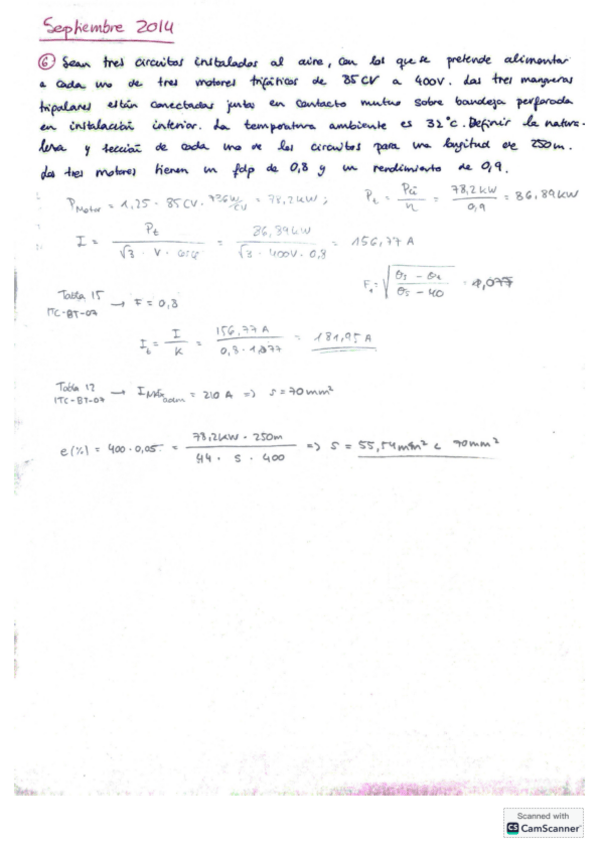 Septiembre 2014
⑥ Sean tres circuitos instalados al aire, con los que se pretende alimentar
a cada uno de tres motores trifásicos de 85CV a 400V. Las tres mangueras
tripolares están conectadas juntas en contacto mutuo sobre bandeja perforada
en instalación interior. La temperatura ambiente es 32°C. Definir la natura-
leza y sección de cada uno de los circuitos para una longitud de 250m.
Los tres motores tienen un fdp de 0,8 y un rendimiento de 0,9.
P_Motor = 1,25 · 85CV · 736W/CV = 78,2kW ; P_t = P_ci / η = 78,2kW / 0,9 = 86,89kW
I = P_t / (√3 · V · cosφ) = 86,89kW / (√3 · 400V · 0,8) = 156,77A
F_1 = √((θs - θa) / (θs - 40)) = 1,077
Tabla 15 ITC-BT-07 → F = 0,8
I_b = I / K = 156,77A / (0,8 · 1,077) = 181,95A
Tabla 12 ITC-BT-07 → I_MÁX adm = 210A => S = 70mm²
e(%) = 400 · 0,05 = (78,2kW · 250m) / (44 · S · 400) => S = 55,54mm² < 70mm²
Scanned with
CS CamScanner